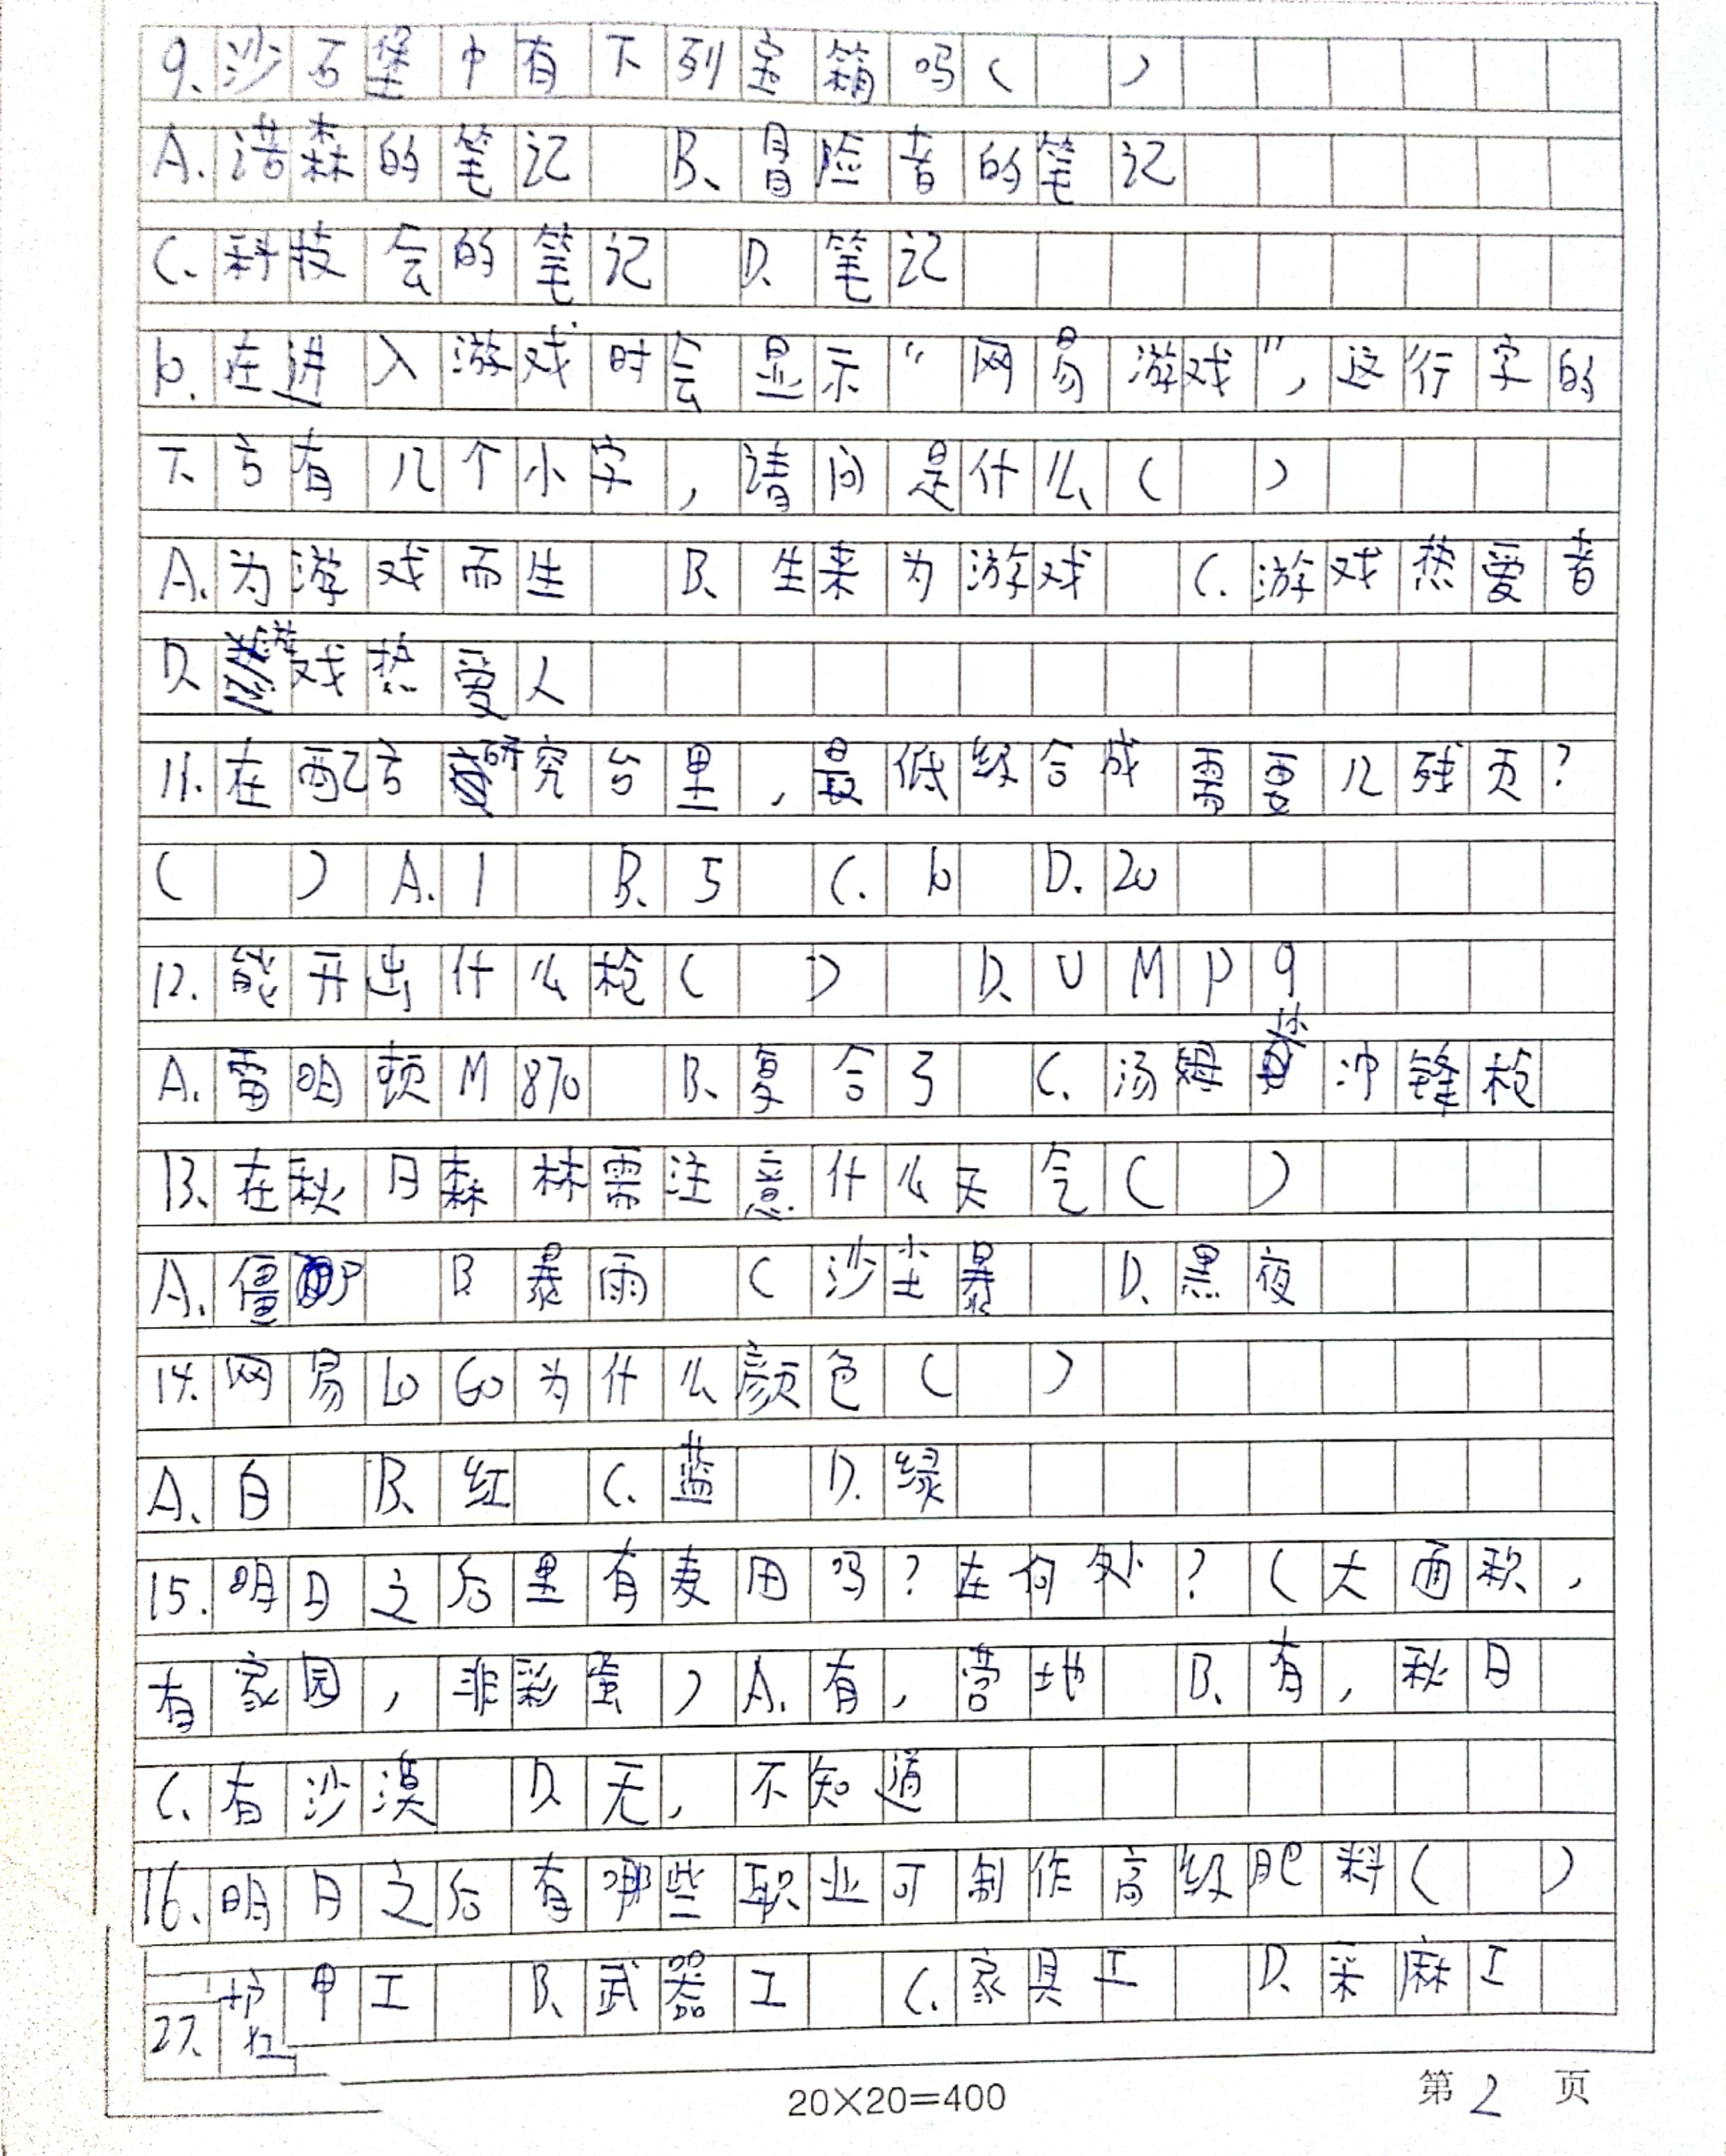 9、沙石堡中有下列宝箱吗（ ）
A.诺森的笔记 B、冒险者的笔记
C、科技会的笔记 D、笔记
10.在进入游戏时会显示“网易游戏”，这行字的
下方有几个小字，请问是什么（ ）
A.为游戏而生 B、生来为游戏 C.游戏热爱者
D、游戏热爱人
11.在配方研究台里，最低级合成需要几残页？
（ ）A.1 B、5 C.10 D.20
12.能开出什么枪（ ） D、UMP9
A.雷明顿M870 B、复合弓 C.汤姆 冲锋枪
13、在秋日森林需注意什么天气（ ）
A.僵 B 暴雨 C 沙尘暴 D、黑夜
14.网易LOGO为什么颜色（ ）
A、白 B、红 C.蓝 D.绿
15.明日之后里有麦田吗？在何处？（大面积，
有家园，非彩蛋）A.有，营地 B、有，秋日
C、有沙漠 D、无，不知道
16、明日之后有哪些职业可制作高级肥料（ ）
护甲工 B、武器工 C.家具工 D、采麻工
27.
20×20=400
第2页